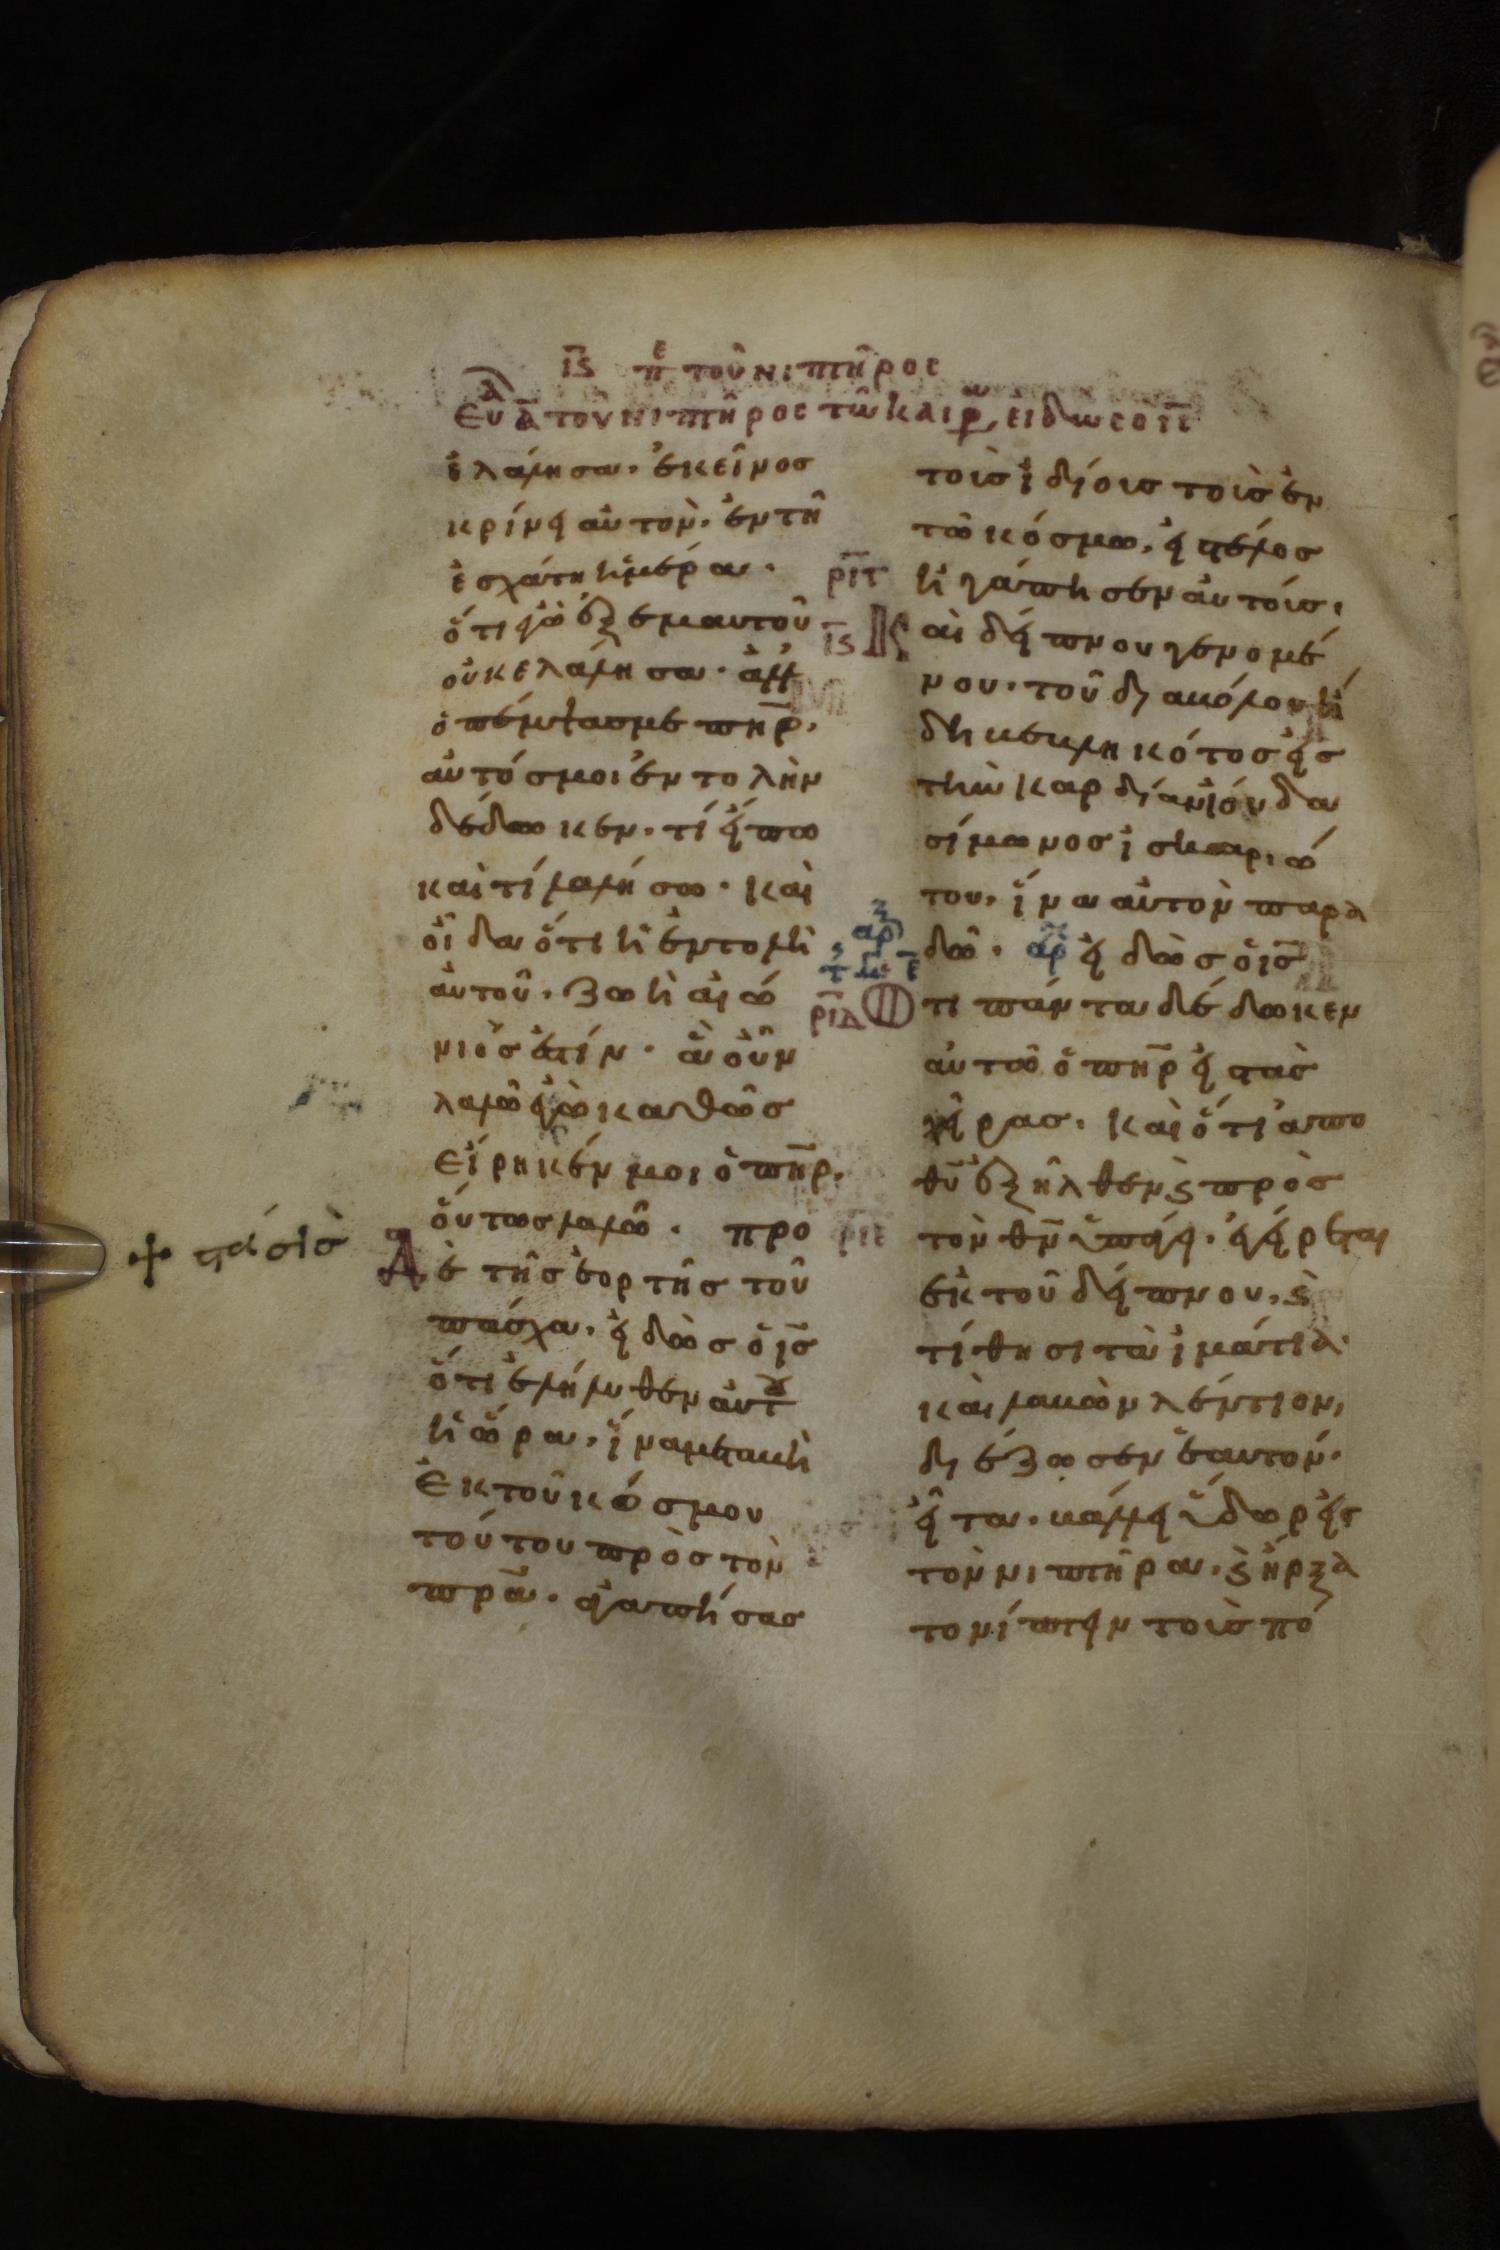 ι̅ς̅ πε τοῦ νιπτῆρος
ευα α̅ τοῦ νιπτῆρος τῶ καιρω, ειδως ο ι̅ς̅
ἐλάλησα· ἐκεῖνος
κρίνει αὐτὸν· ἐν τῆ
ἐσχάτη ἡμέρα·
ὅτι ἐγὼ ἐξ ἐμαυτοῦ
οὐκ ελάλησα· ἀλλ
ὁ πέμψασ με π̅η̅ρ̅·
αὐτόσ μοι ἐντολὴν
δέδωκεν· τί εἴπω
καὶ τί λαλήσω· καὶ
οἶδα ὅτι ἡ ἐντολὴ
ἀυτοῦ· ζωὴ αἰώ
νιόσ ἐστίν· ἃ οὖν
λαλῶ ἐγὼ καθῶσ
εἴρηκέν μοι ὁ π̅η̅ρ̅·
ὅυτωσ λαλῶ· προ
δὲ τῆσ ἑορτῆσ τοῦ
πάσχα· εἰδὼσ ὁ ι̅σ̅
ὅτι ἐλήλυθεν αὐτου
ἡ ὥρα· ἵνα μεταβῆ
ἐκ τοῦ κόσμου
τούτου πρὸσ τὸν
π̅ρ̅α̅· ἀγαπήσασ
✢ πάσις
τοὶσ ἰδίοισ τοὶσ ἐν
τῶ κόσμω· εἰς τέλοσ
ρ̅ι̅γ̅ ἠγάπησεν αὐτούσ·
ι̅ς̅ Και δείπνου γενομέ
νου· τοῦ διαβόλου ἤ
δη βεβληκότοσ εἰσ
τὴν καρδίαν ἰούδα
σίμωνοσ ἰσκαριώ
του· ἵνα αὐτὸν παρα
δῶ· αρ εἰδὼσ ὁ ι̅σ̅
ρ̅ι̅δ̅ ὅτι πάντα δέδωκεν
αὐτῶ ὁ π̅η̅ρ̅ εἰς τὰσ
χεῖρασ· καὶ ὅτι ἀπο
θ̅υ̅ ἐξῆλθεν ϛ πρὸσ
ρ̅ι̅ε̅ τὸν θ̅ν̅ ὑπάγει· ἐγείρεται
ἐκ τοῦ δείπνου· ϛ
τίθησι τὰ ἱμάτια·
καὶ λαβὼν λέντιον,
διέζωσεν ἑαυτόν·
εἶτα· βάλλει ὕδωρ εἰσ
τὸν νιπτῆρα· ϛ ἤρξα
το νίπτειν τοὺσ πό